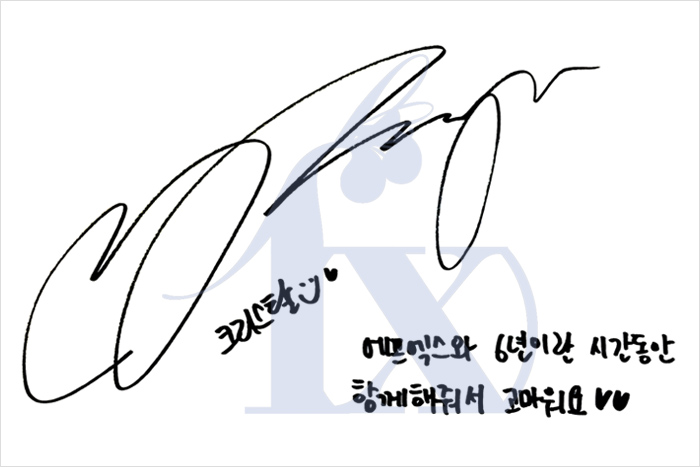 fx
크리스탈:) ♥
에프엑스와 6년이란 시간동안
함께해줘서 고마워요 ♥♥